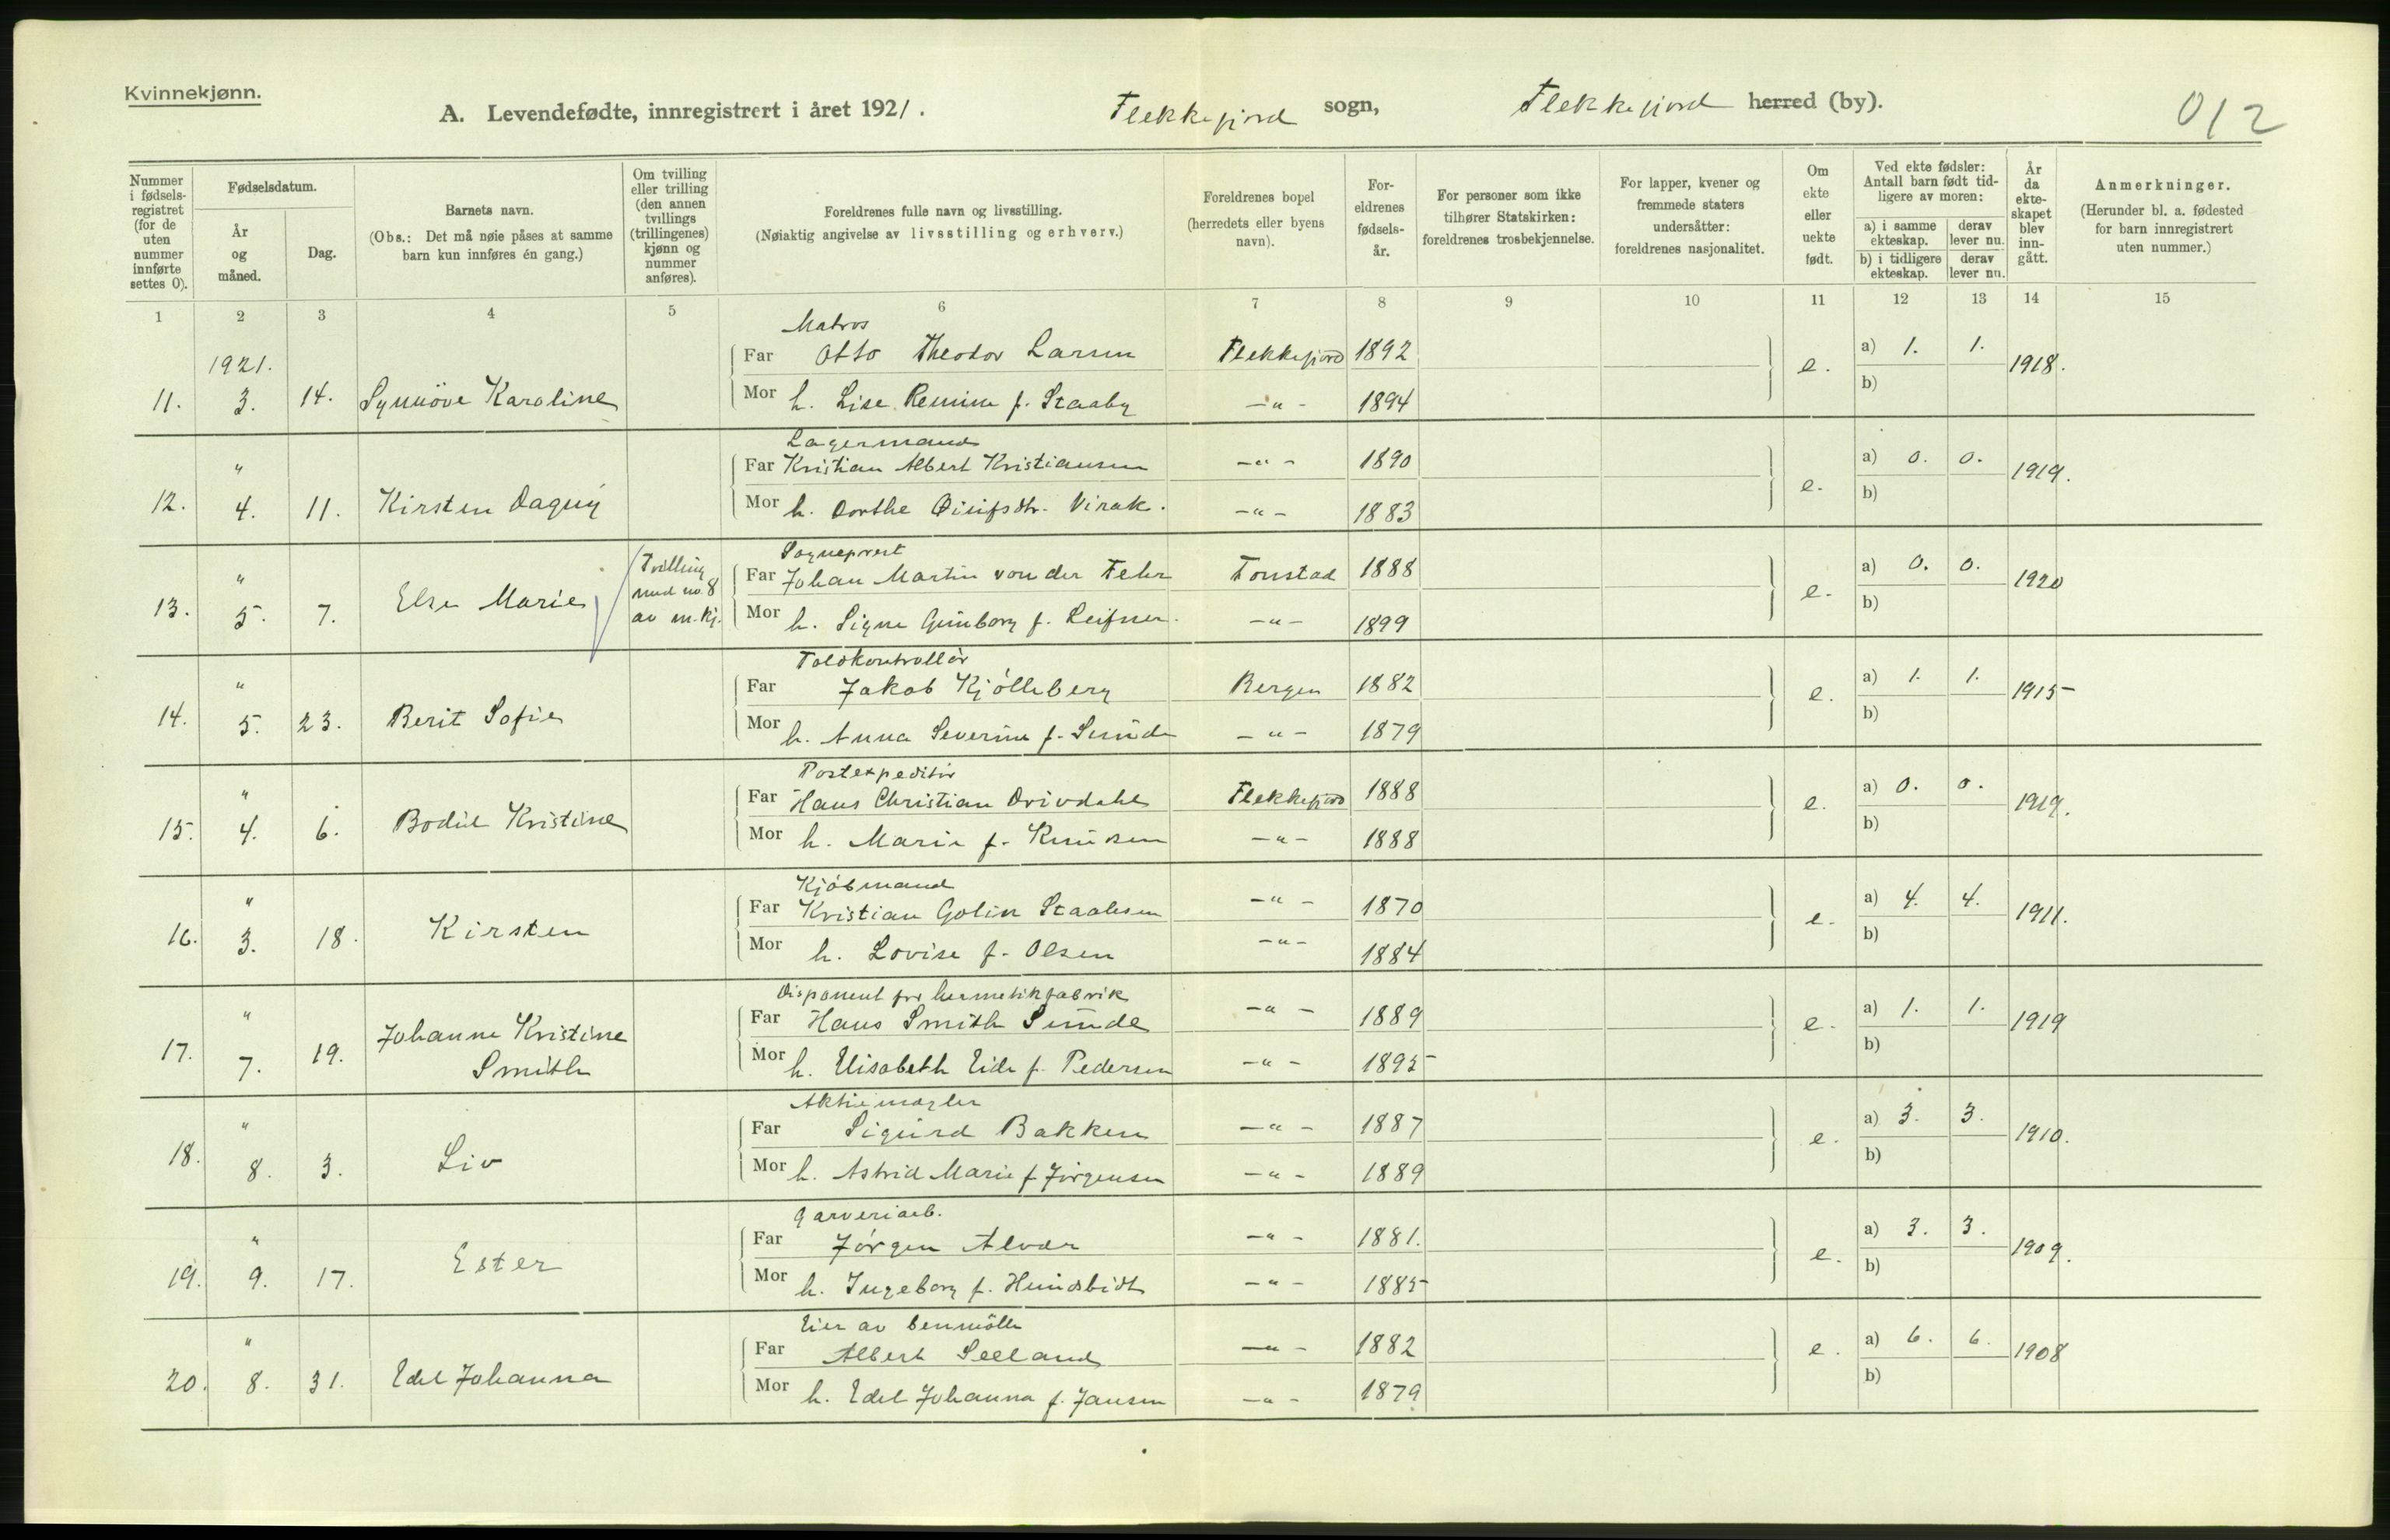 Kvinnekjønn.
A. Levendefødte, innregistrert i året 1921. Flekkefjord sogn, Flekkefjord herred (by).
012
Nummer i fødsels-registret (for de uten nummer innførte settes 0).
Fødselsdatum.
År og måned.
Dag.
Barnets navn.
(Obs.: Det må nøie påses at samme barn kun innføres én gang.)
Om tvilling eller trilling (den annen tvillings (trillingenes) kjønn og nummer anføres).
Foreldrenes fulle navn og livsstilling.
(Nøiaktig angivelse av livsstilling og erhverv.)
Foreldrenes bopel (herredets eller byens navn).
For-eldrenes fødsels-år.
For personer som ikke tilhører Statskirken: foreldrenes trosbekjennelse.
For lapper, kvener og fremmede staters undersåtter: foreldrenes nasjonalitet.
Om ekte eller uekte født.
Ved ekte fødsler: Antall barn født tid-ligere av moren:
a) i samme ekteskap. derav lever nu.
b) i tidligere ekteskap. derav lever nu.
År da ekte-skapet blev inn-gått.
Anmerkninger.
(Herunder bl. a. fødested for barn innregistrert uten nummer.)
1 2 3 4 5 6 7 8 9 10 11 12 13 14 15
Matros
1921. Far Otto Theodor Larsen Flekkefjord 1892 a) 1. 1.
11. 3. 14. Synnöve Karoline Mor h. Lise f. Staaby -"- 1894 e. b) 1918.
Lagermand
" Far Kristian Albert Kristiansen -"- 1890 a) 0. 0.
12. 4. 11. Kirsten Dagny Mor h. Dorthe Virak. -"- 1883 e. b) 1919.
Sogneprest
" Tvilling med no. 8 av m.kj. Far Johan Martin von der Fehr Tonstad 1888 a) 0. 0.
13. 5. 7. Else Marie Mor h. Signe Gunborg f. -"- 1899 e. b) 1920
Toldkontrollör
" Far Jakob Kjölleberg Bergen 1882 a) 1. 1.
14. 5. 23. Berit Sofie Mor h. Anna Severine f. Sunde -"- 1879 e. b) 1915
Postexpeditör
" Far Hans Christian Drivdahl Flekkefjord 1888 a) 0. 0.
15. 4. 6. Bodil Kristine Mor h. Marie f. Knudsen -"- 1888 e. b) 1919.
Kjöbmand
" Far Kristian Golin Staalesen -"- 1870 a) 4. 4.
16. 3. 18. Kirsten Mor h. Lovise f. Olsen -"- 1884 e. b) 1911.
Disponent for hermetikfabrik
" Far Hans Smith Sunde -"- 1889 a) 1. 1.
17. 7. 19. Johanne Kristine Smith Mor h. Elisabeth Eide f. Pedersen -"- 1895 e. b) 1919
Aktiemægler
" Far Sigurd Bakken -"- 1887 a) 3. 3.
18. 8. 3. Liv Mor h. Astrid Marie f. Jörgensen -"- 1889 e. b) 1910.
Garveriarb.
" Far Jörgen Alvær -"- 1881. a) 3. 3.
19. 9. 17. Ester Mor h. Ingeborg f. Hundsbidt -"- 1885 e. b) 1909.
Eier av benmölle
" Far Albert Seeland -"- 1882 a) 6. 6.
20. 8. 31. Edel Johanna Mor h. Edel Johanna f. Jansen -"- 1879 e. b) 1908